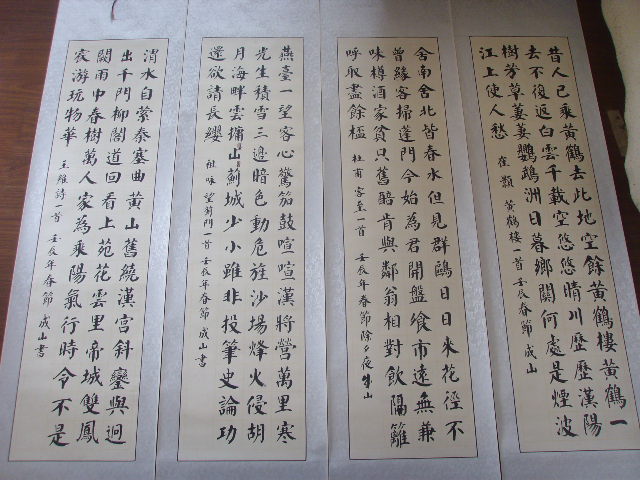 昔人已乘黃鶴去此地空餘黃鶴樓黃鶴一
去不復返白雲千載空悠悠晴川歷歷漢陽
樹芳草萋萋鸚鵡洲日暮鄉關何處是煙波
江上使人愁 崔顥 黃鶴樓一首 壬辰春節 成山
舍南舍北皆春水但見群鷗日日來花徑不
曾緣客掃蓬門今始為君開盤飧市遠無兼
味樽酒家貧只舊醅肯與鄰翁相對飲隔籬
呼取盡餘桮 杜甫 客至一首 壬辰年春節除夕夜 成山
燕臺一望客心驚笳鼓喧喧漢將營萬里寒
光生積雪三邊暗色動危旌沙場烽火侵胡
月海畔雲擁山薊城少小雖非投筆史論功
還欲請長纓 祖咏 望薊門一首 壬辰年春節 成山書
渭水自縈秦塞曲黃山舊繞漢宮斜鑾輿迥
出千門柳閣道回看上苑花雲里帝城雙鳳
闕雨中春樹萬人家為乘陽氣行時令不是
宸游玩物華 王維詩一首 壬辰年春節 成山書